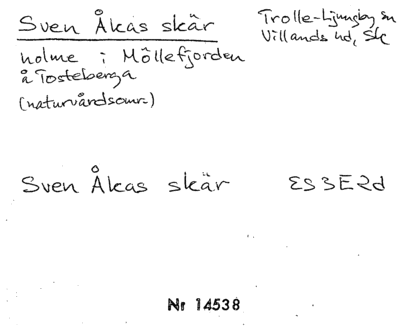 Sven Åkas skär
Trolle-Ljungby sn
Villands hd, Sk
holme i Möllefjorden
å Tosteberga
(naturvårdsomr.)
Sven Åkas skär 3E2d
Nr 14538